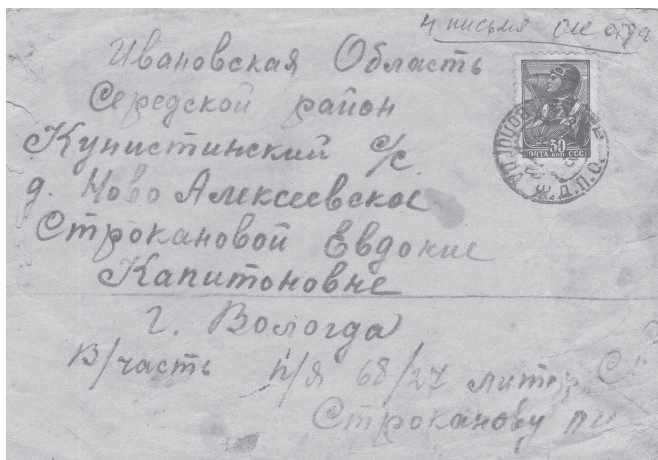 4 письма
Ивановская Область
Середской район
Кунистинский с/с.
д. Ново Алексеевское
Строкановой Евдокие
Капитоновне
г. Вологда
В/часть п/я 68/27 литер
Строканову
30
ПОЧТА КОП ССС
Ж.Д.П.О.